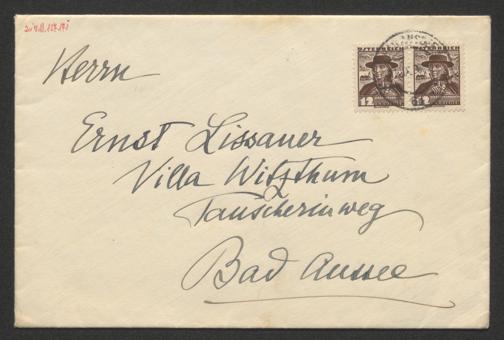 Herrn
Ernst Lissauer
Villa Witzthum
Tauscherinweg
Bad Aussee
ÖSTERREICH ÖSTERREICH
12 12